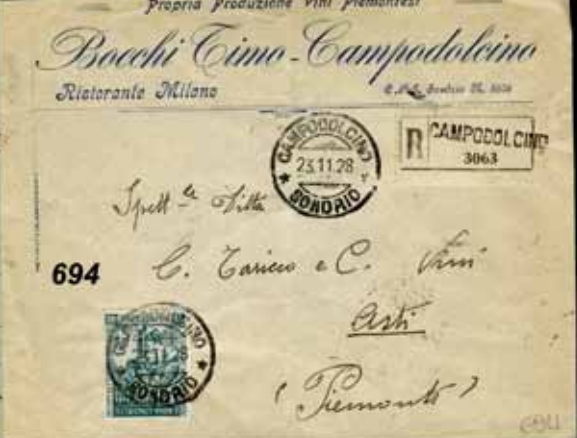 Propria Produzione Vini Piemontesi
Bocchi Timo - Campodolcino
Ristorante Milano
C.P.E. Sondrio
CAMPODOLCINO
23.11.28
SONDRIO
R CAMPODOLCINO
3063
Spett. le Ditta
C. e C. Vini
694
Asti
(Piemonte)
SONDRIO